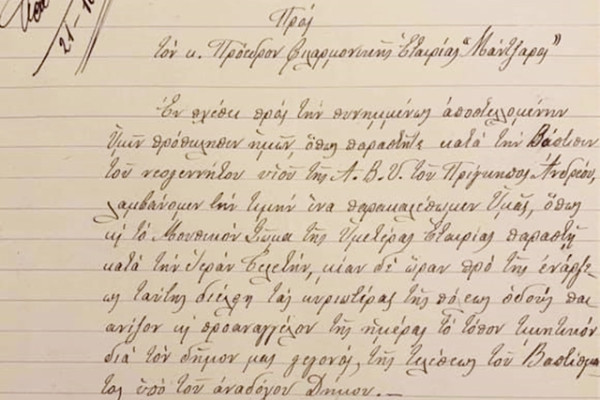 Πρός
τὸν κ. Πρόεδρον Φιλαρμονικῆς Ἑταιρίας "Μάντζαρος"
Ἐν σχέσει πρὸς τὴν συνημμένως ἀποστελομένην
Ὑμῖν πρόσκλησιν ἡμῶν, ὅπως παραστῆτε κατὰ τὴν Βάπτισιν
τοῦ νεογεννήτου υἱοῦ τῆς Α.Β.Υ. τοῦ Πρίγκηπος Ἀνδρέου,
λαμβάνομεν τὴν τιμὴν ἵνα παρακαλέσωμεν Ὑμᾶς, ὅπως
κ τὸ Μουσικὸν Σῶμα τῆς Ὑμετέρας Ἑταιρίας παραστῇ
κατὰ τὴν Ἱερὰν Τελετὴν, μίαν δὲ ὥραν πρὸ τῆς ἐνάρξε-
ως ταύτης διέλθῃ τὰς κυριωτέρας τῆς πόλεως ὁδοὺς παι
ανίζον κ προαναγγέλον τῆς ἡμέρας τὸ τόσον τιμητικὸν
διὰ τὸν δῆμον μας γεγονὸς, τῆς τελέσεως τοῦ Βαπτίσμα
τος ὑπὸ τοῦ ἀναδόχου Δήμου. —